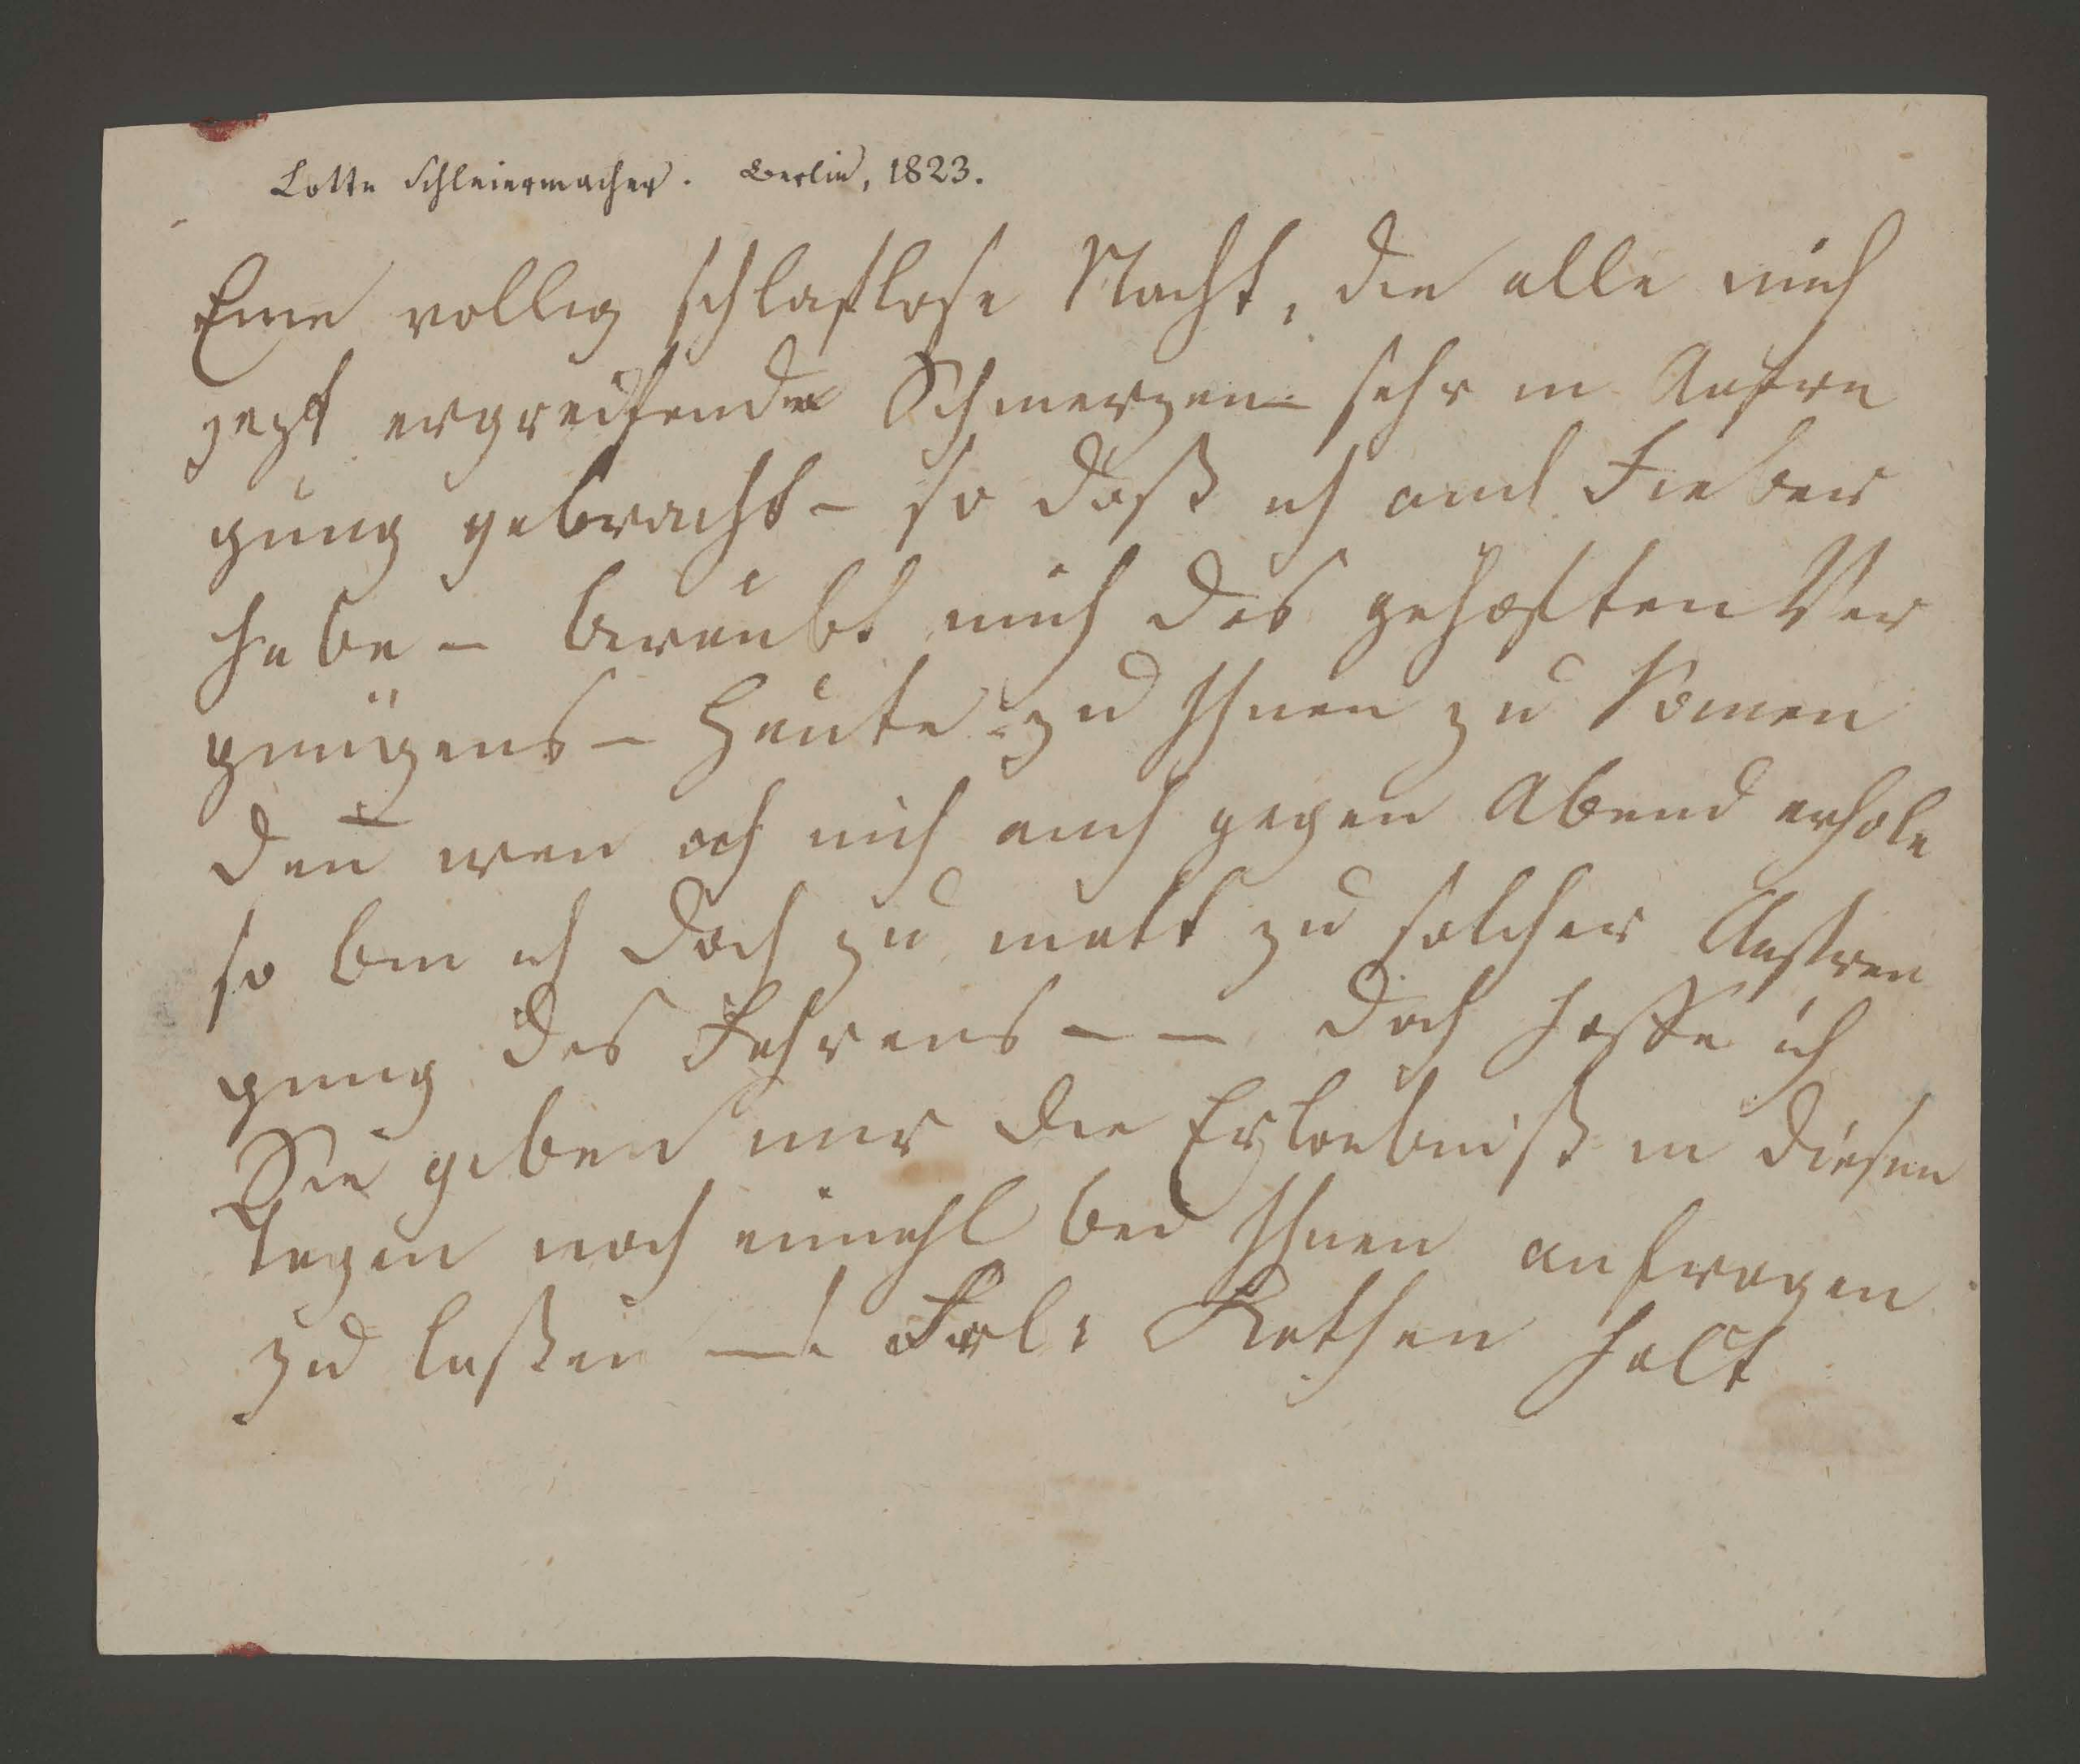 Lotte Schleiermacher. Berlin, 1823.
Eine vollig schlaflose Nacht, die alle mich
jezt ergreifende Schmerzen sehr in Aufre
gung gebracht - so daß ich auch Fieber
habe - beraubt mich des gehoften Ver
gnügens - heute zu Ihnen zu komen
den̅ wen ich mich auch gegen Abend erhole
so bin ich doch zu matt zu solcher Anstren
gung des Fahrens - - doch hoffe ich
Sie geben mir die Erlaubniß in diesen
Tagen noch einmahl bei Ihnen anfragen
zu laßen -. Frl: Kathen halt